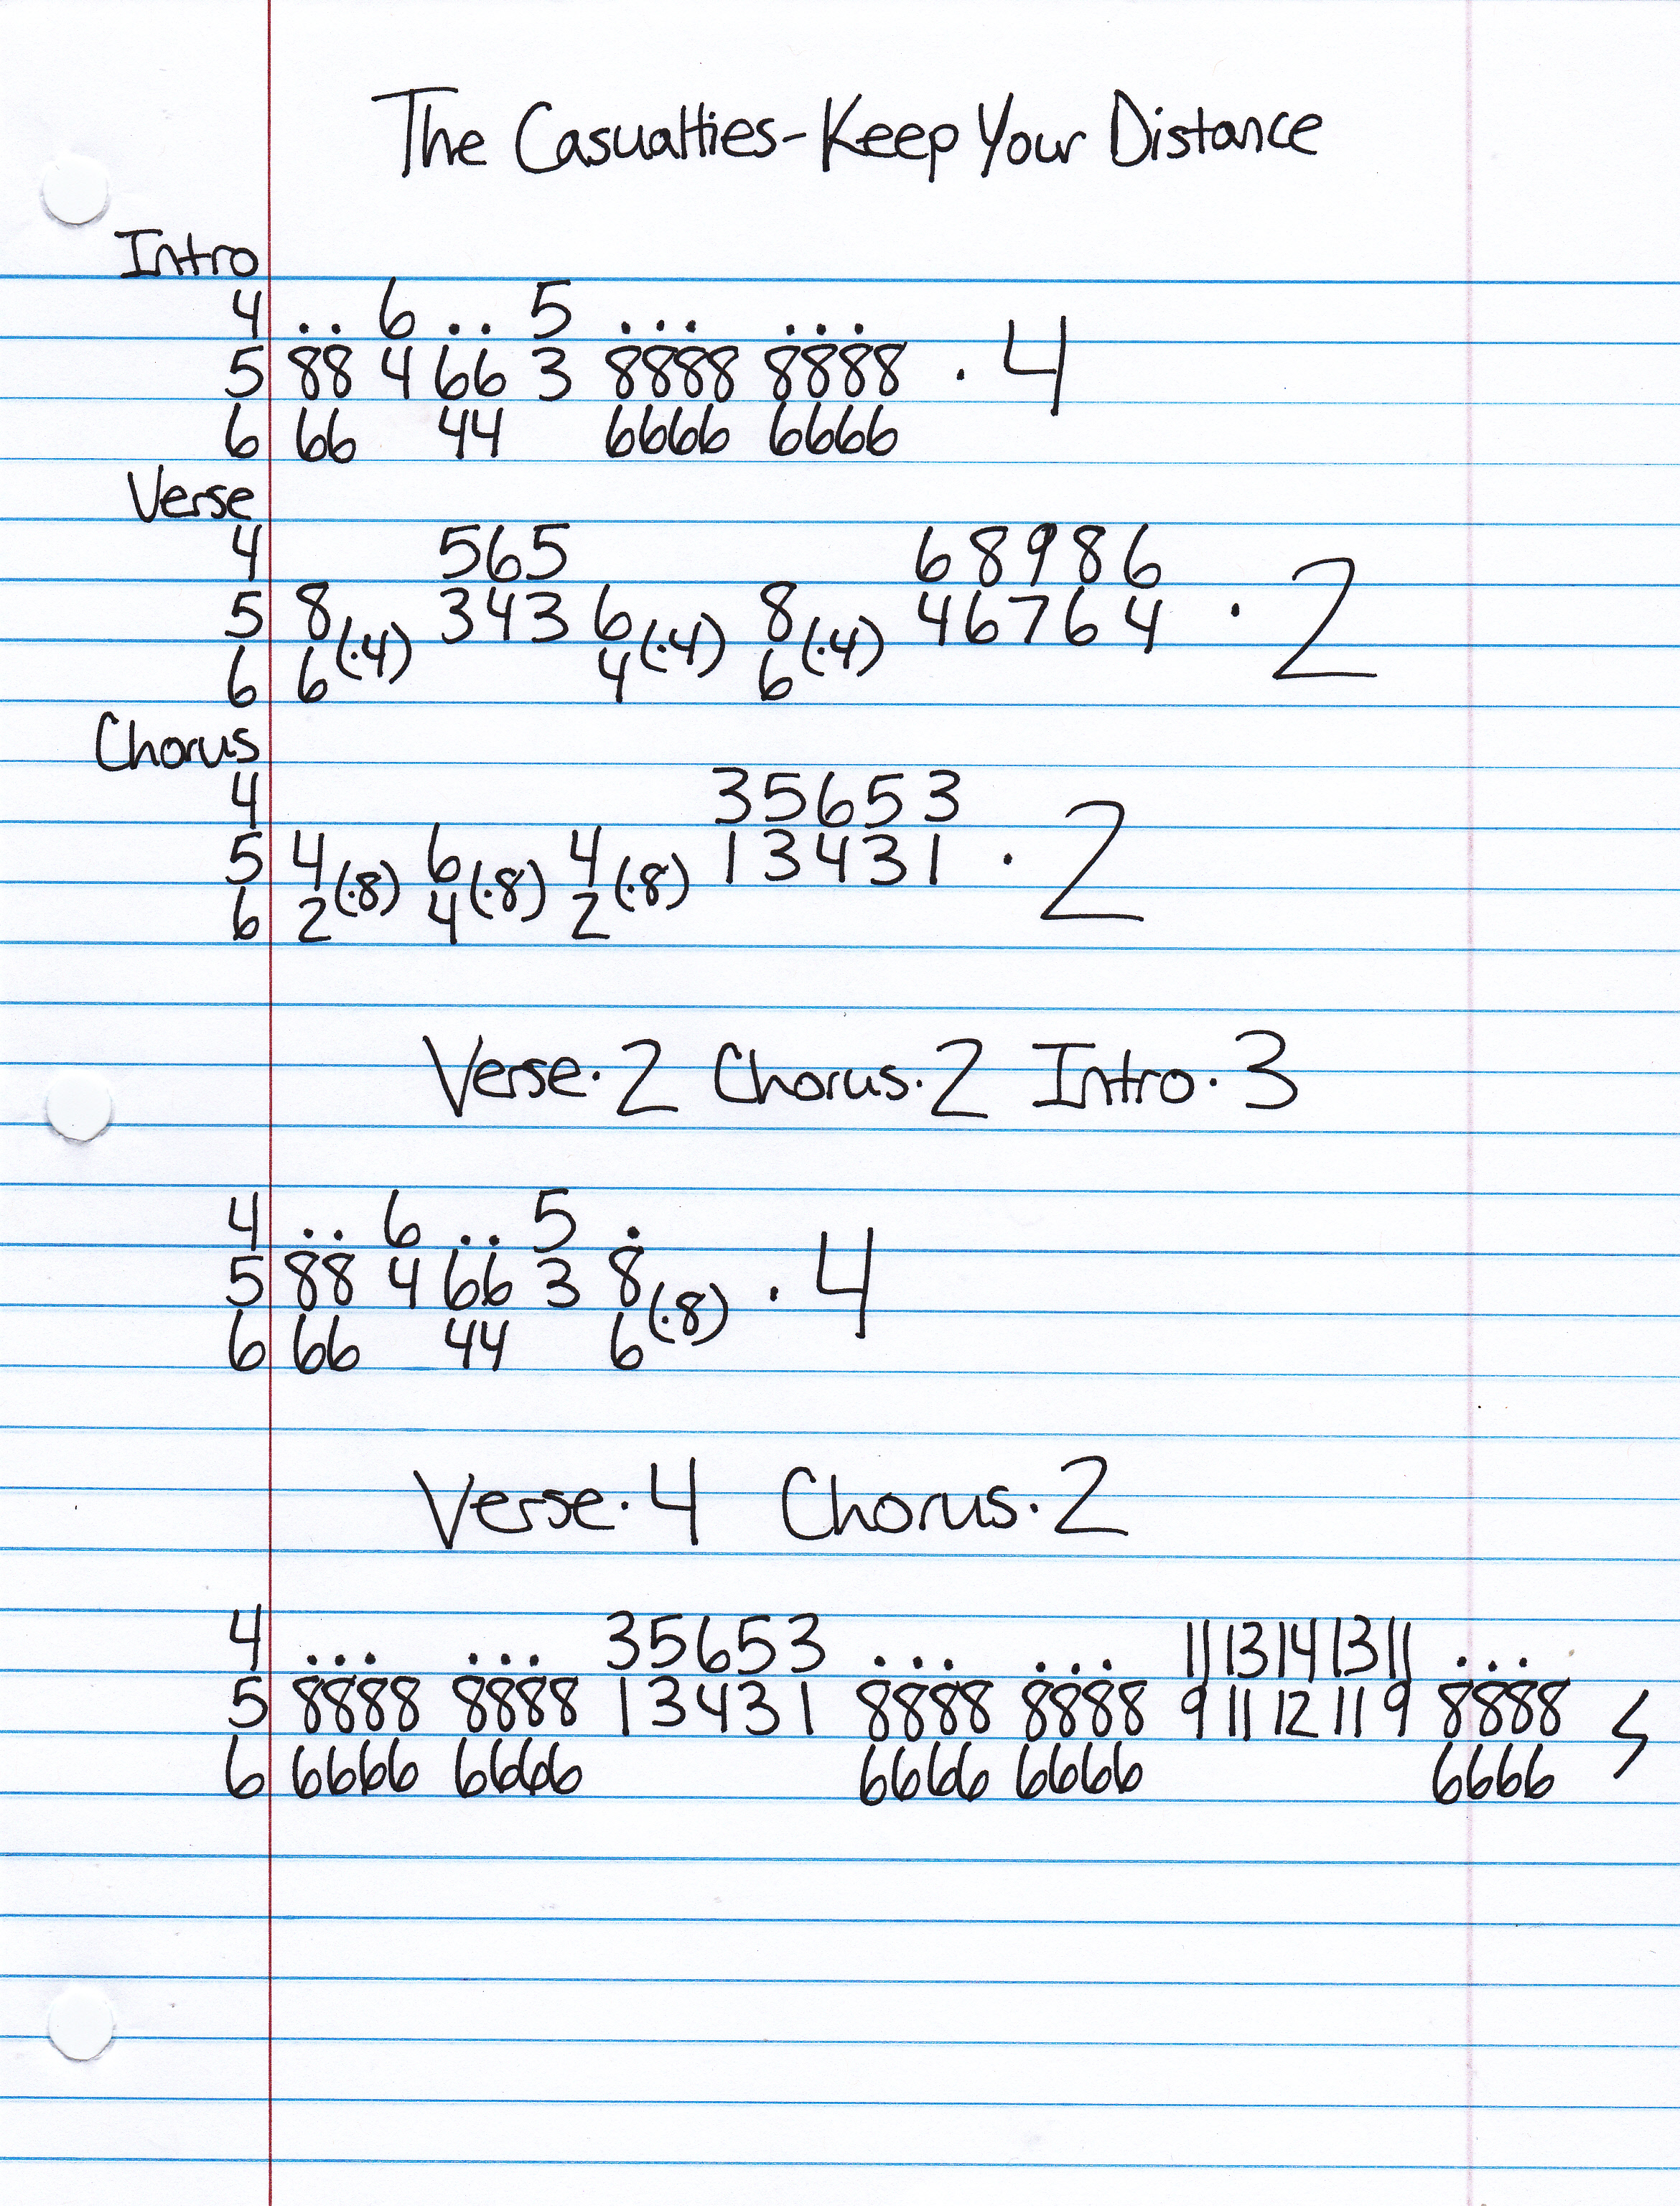 The Casualties-Keep Your Distance
Intro
4 .. 6 .. 5 ... ...
5 88 4 66 3 8888 8888 . 4
6 66 44 6666 6666
Verse
4 565 68986
5 8 (.4) 343 6 (.4) 8 (.4) 46764 . 2
6 6 4 6
Chorus
4 35653
5 4 (.8) 6 (.8) 4 (.8) 13431 . 2
6 2 4 2
Verse.2 Chorus.2 Intro.3
4 .. 6 .. 5 .
5 88 4 66 3 8 (.8) . 4
6 66 44 6
Verse.4 Chorus.2
4 ... ... 35653 ... ... 11 13 14 13 11 ...
5 8888 8888 13431 8888 8888 9 11 12 11 9 8888
6 6666 6666 6666 6666 6666